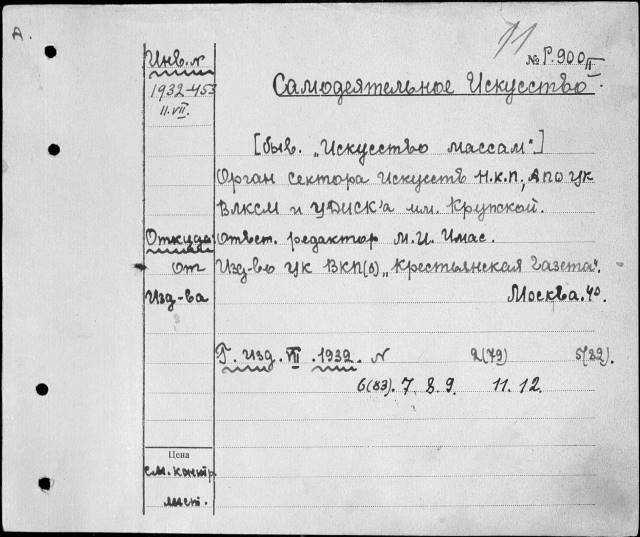 А.
Инв. N
1932-453
11.VII.
11
№ Г.900 II
Самодеятельное Искусство.
[быв. „Искусство массам".]
Орган сектора Искусств Н.К.П., АПО ЦК
ВЛКСМ и ЦДИСК'а им. Крупской.
Откуда: Ответ. редактор М.И. Имас.
От Изд-во ЦК ВКП(б) „Крестьянская Газета".
Изд-ва Москва. 40.
Г. изд. VII. 1932. N 2(79) 5(82).
6(83). 7. 8. 9. 11. 12.
Цена
см. контр
лист.